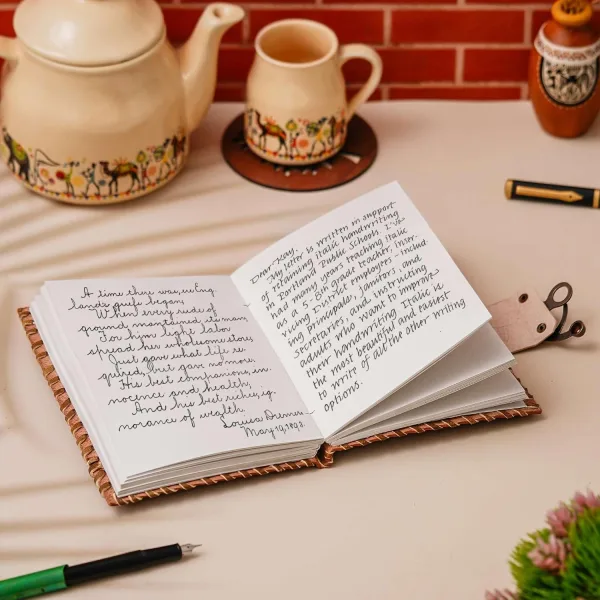 A time there was, ere Eng-
land's griefs began,
When every rood of
ground maintained its man,
For him light labor
spread her wholesome store,
Just gave what life re-
quired, but gave no more.
His best companions, in-
nocence and health,
And his best riches, ig-
norance of wealth.
Louisa
May 19, 1893.
Dear Kay,
My letter is written in support
of retaining italic handwriting
in Portland Public Schools. I've
had a many years teaching italic
as a 5-8th grade teacher, inser-
vicing District employees - includ-
ing principals, janitors, and
secretaries, and instructing
adults who want to improve
their handwriting. Italic is
the most beautiful and easiest
to write of all the other writing
options.